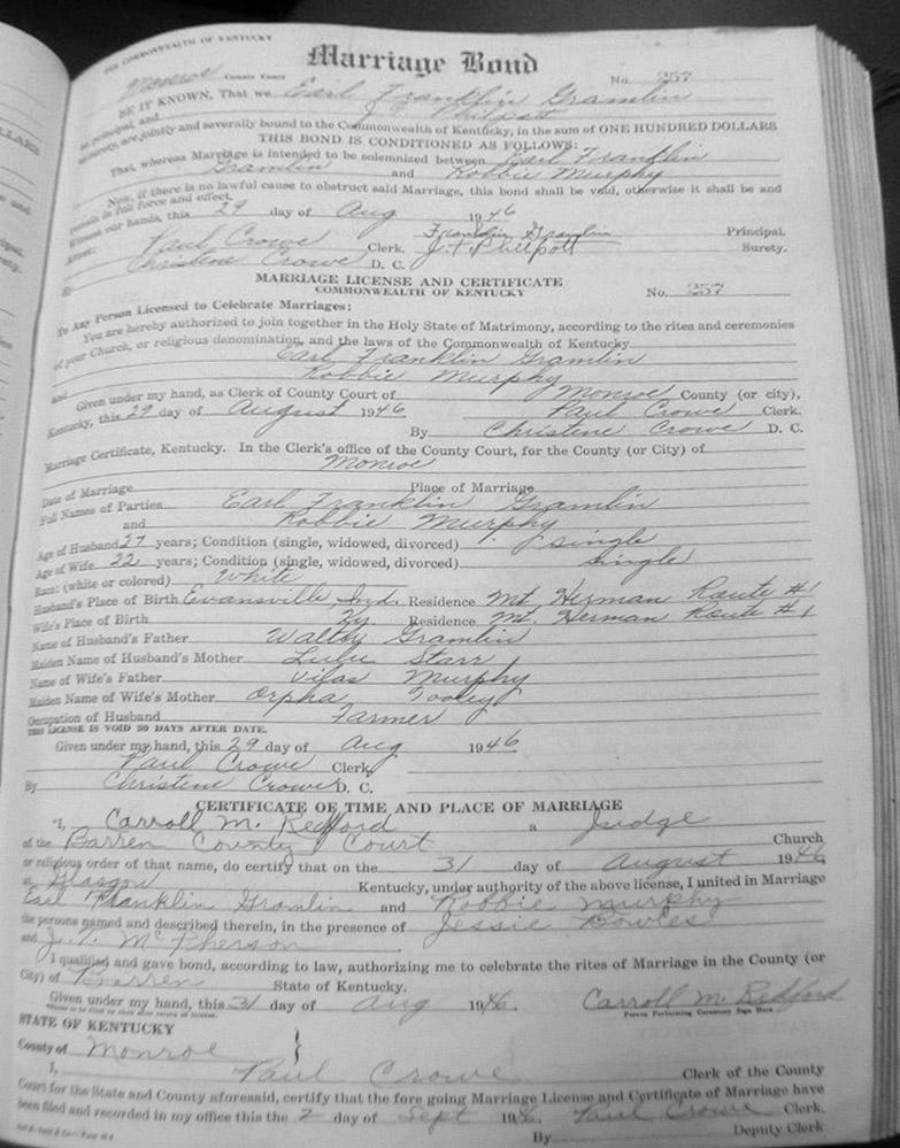 THE COMMONWEALTH OF KENTUCKY
Marriage Bond
Monroe County Court No. 257
BE IT KNOWN, That we Earl Franklin Gramlin
as principal, and J. T. Philpott
as surety, are jointly and severally bound to the Commonwealth of Kentucky, in the sum of ONE HUNDRED DOLLARS
THIS BOND IS CONDITIONED AS FOLLOWS:
That, whereas Marriage is intended to be solemnized between Earl Franklin
Gramlin and Robbie Murphy
Now, if there is no lawful cause to obstruct said Marriage, this bond shall be void, otherwise it shall be and
remain in full force and effect.
Witness our hands, this 29 day of Aug 1946
Attest: Franklin Gramlin Principal.
Paul Crowe Clerk. J. T. Philpott Surety.
By Christene Crowe D. C.
MARRIAGE LICENSE AND CERTIFICATE
COMMONWEALTH OF KENTUCKY No. 257
To Any Person Licensed to Celebrate Marriages:
You are hereby authorized to join together in the Holy State of Matrimony, according to the rites and ceremonies
of your Church, or religious denomination, and the laws of the Commonwealth of Kentucky
Earl Franklin Gramlin
and Robbie Murphy
Given under my hand, as Clerk of County Court of Monroe County (or city),
Kentucky, this 29 day of August 1946 Paul Crowe Clerk.
By Christene Crowe D. C.
Marriage Certificate, Kentucky. In the Clerk's office of the County Court, for the County (or City) of
Monroe
Date of Marriage Place of Marriage
Full Names of Parties Earl Franklin Gramlin
and Robbie Murphy
Age of Husband 27 years; Condition (single, widowed, divorced) single
Age of Wife 22 years; Condition (single, widowed, divorced) single
Race: (white or colored) White
Husband's Place of Birth Evansville, Ind. Residence Mt Herman Route #1
Wife's Place of Birth Ky Residence Mt. Herman Route #1
Name of Husband's Father Walthy Gramlin
Maiden Name of Husband's Mother Lulu Starr
Name of Wife's Father Vilas Murphy
Maiden Name of Wife's Mother Orpha Tooley
Occupation of Husband Farmer
THIS LICENSE IS VOID 30 DAYS AFTER DATE.
Given under my hand, this 29 day of Aug 1946
Paul Crowe Clerk
By Christene Crowe D. C.
CERTIFICATE OF TIME AND PLACE OF MARRIAGE
"I, Carroll M. Redford a Judge
of the Barren County Court Church
or religious order of that name, do certify that on the 31 day of August 1946
at Glasgow Kentucky, under authority of the above license, I united in Marriage
Earl Franklin Gramlin and Robbie Murphy
the persons named and described therein, in the presence of Jessie Bowles
and J. T. McPherson
I qualified and gave bond, according to law, authorizing me to celebrate the rites of Marriage in the County (or
City) of Barren State of Kentucky.
Given under my hand, this 31 day of Aug 1946. Carroll M. Redford
Person Performing Ceremony Sign Here
STATE OF KENTUCKY
County of Monroe
I, Paul Crowe Clerk of the County
Court for the State and County aforesaid, certify that the fore going Marriage License and Certificate of Marriage have
been filed and recorded in my office this the 2 day of Sept 1946. Paul Crowe Clerk.
By Deputy Clerk